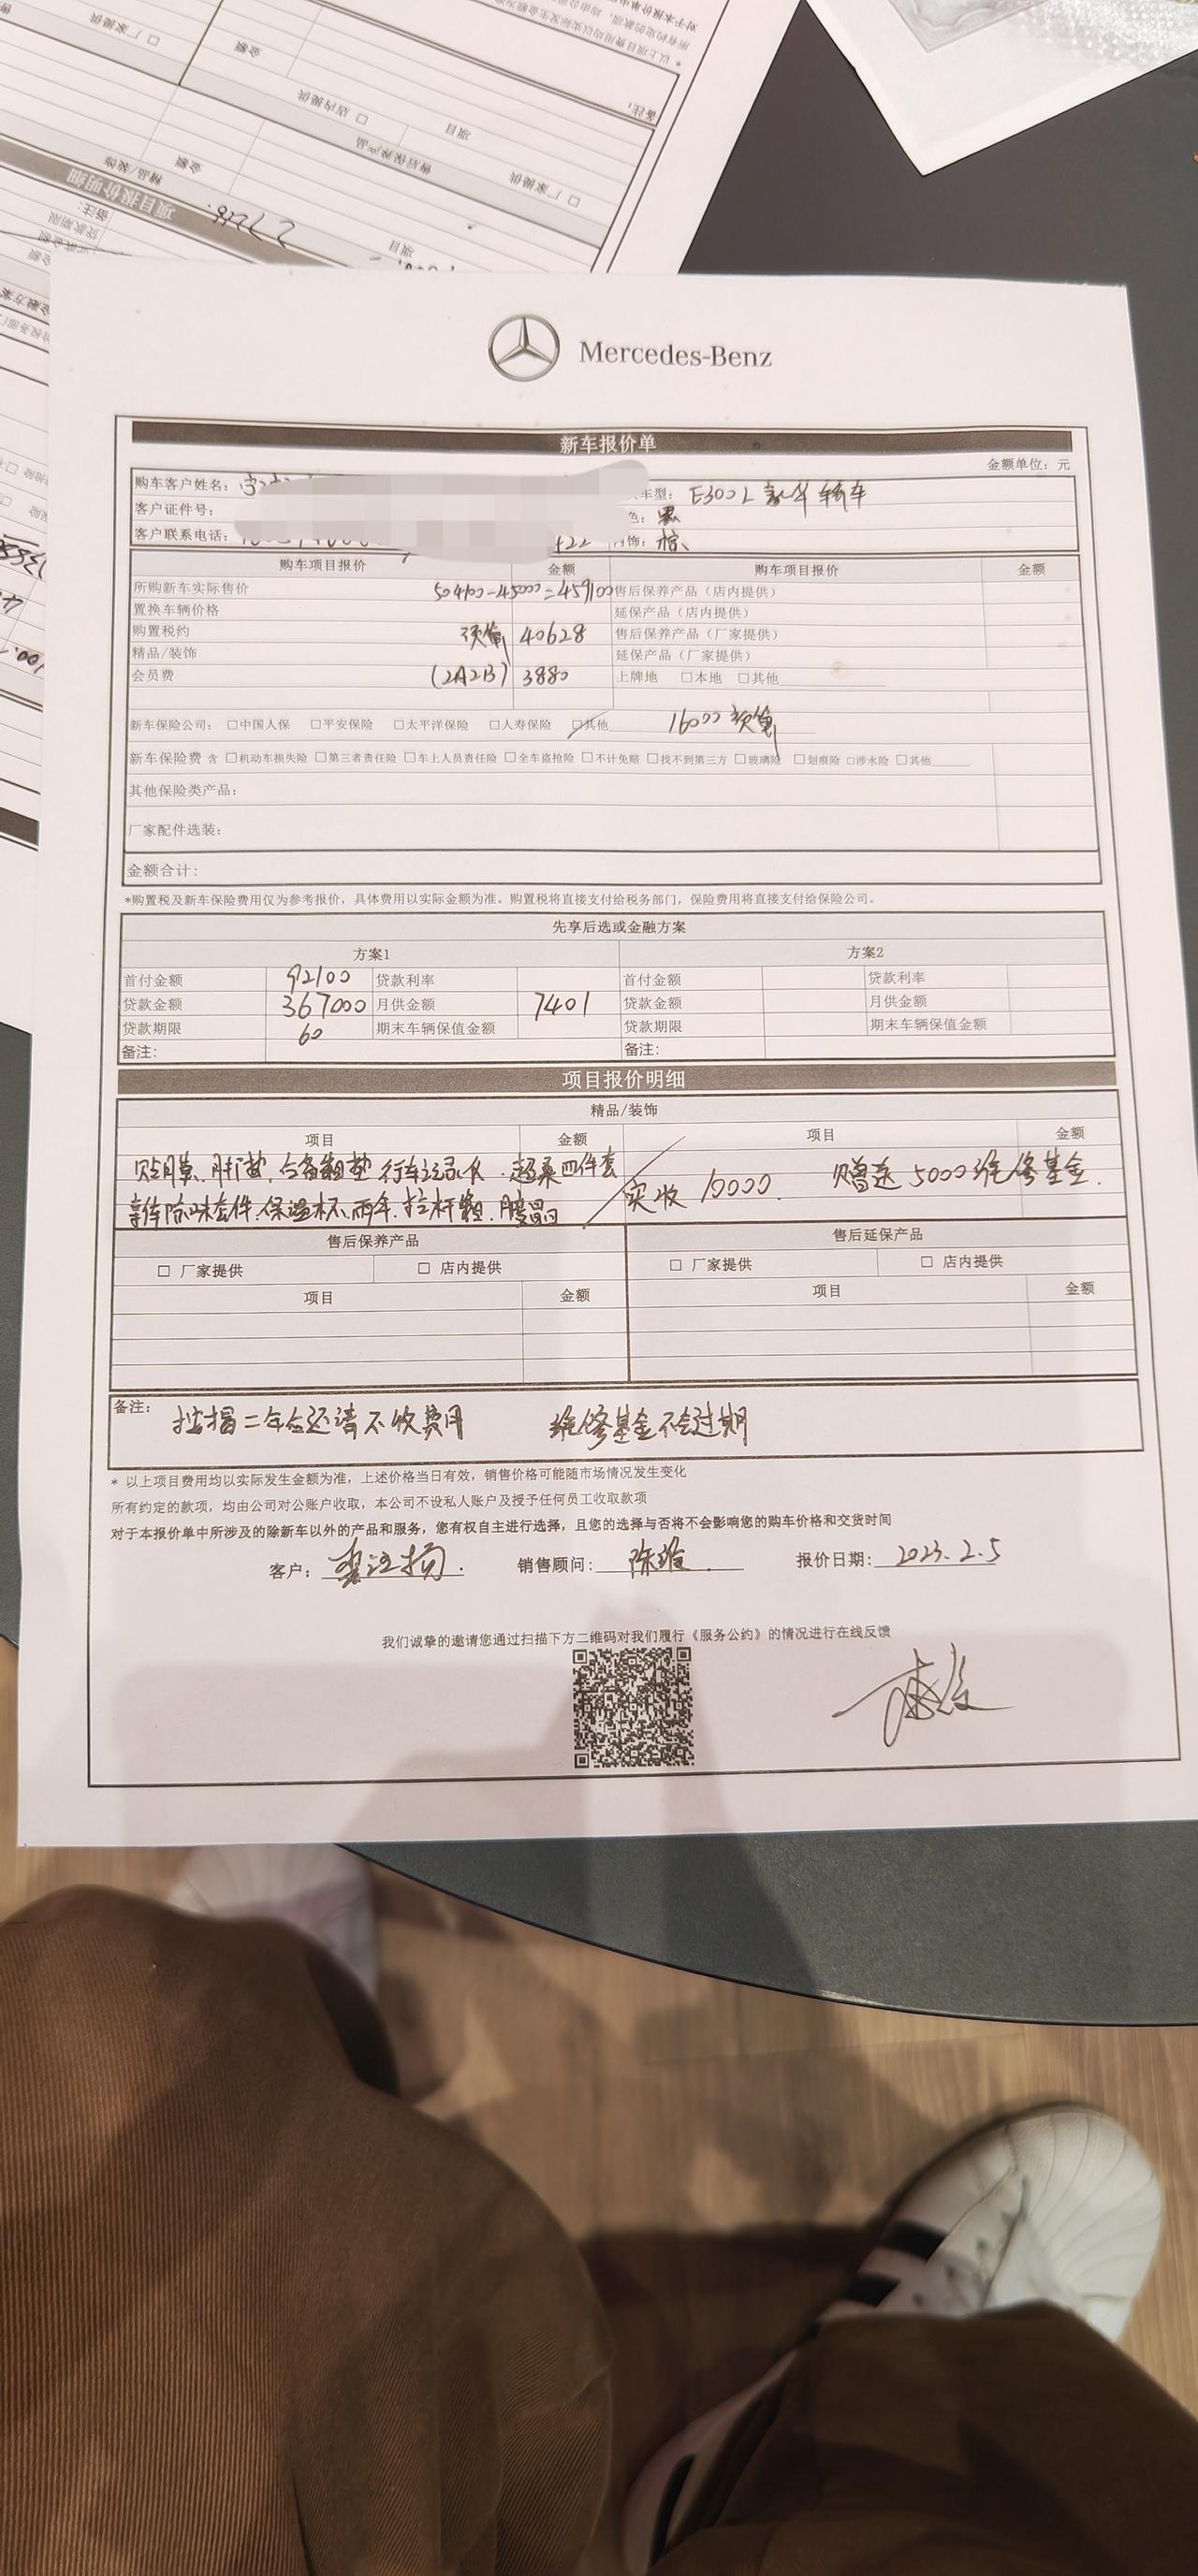 Mercedes-Benz
新车报价单
金额单位：元
购车客户姓名：
车型： E300L 豪华 轿车
客户证件号：
色： 黑
客户联系电话：
内饰： 棕
购车项目报价 金额 购车项目报价 金额
所购新车实际售价 504100-45000=459100 售后保养产品（店内提供）
置换车辆价格 延保产品（店内提供）
购置税约 预算 40628 售后保养产品（厂家提供）
精品/装饰 延保产品（厂家提供）
会员费 (2A2B) 3880 上牌地 □本地 □其他
新车保险公司： □中国人保 □平安保险 □太平洋保险 □人寿保险 □其他 16000 预算
新车保险费 含 □机动车损失险 □第三者责任险 □车上人员责任险 □全车盗抢险 □不计免赔 □找不到第三方 □玻璃险 □划痕险 □涉水险 □其他
其他保险类产品：
厂家配件选装：
金额合计：
*购置税及新车保险费用仅为参考报价，具体费用以实际金额为准。购置税将直接支付给税务部门，保险费用将直接支付给保险公司。
先享后选或金融方案
方案1 方案2
首付金额 92100 贷款利率 首付金额 贷款利率
贷款金额 367000 月供金额 7401 贷款金额 月供金额
贷款期限 60 期末车辆保值金额 贷款期限 期末车辆保值金额
备注： 备注：
项目报价明细
精品/装饰
项目 金额 项目 金额
贴膜.脚垫.后备箱垫 行车记录仪.起亲四件套
除味套件.保温杯.雨伞.拉杆箱. 实收 10000. 赠送 5000 维修基金.
售后保养产品 售后延保产品
□ 厂家提供 □ 店内提供 □ 厂家提供 □ 店内提供
项目 金额 项目 金额
备注： 按揭二年后还请不收费用 维修基金不会过期
* 以上项目费用均以实际发生金额为准，上述价格当日有效，销售价格可能随市场情况发生变化
所有约定的款项，均由公司对公账户收取，本公司不设私人账户及授予任何员工收取款项
对于本报价单中所涉及的除新车以外的产品和服务，您有权自主进行选择，且您的选择与否将不会影响您的购车价格和交货时间
客户： 销售顾问： 报价日期： 2023.2.5
我们诚挚的邀请您通过扫描下方二维码对我们履行《服务公约》的情况进行在线反馈